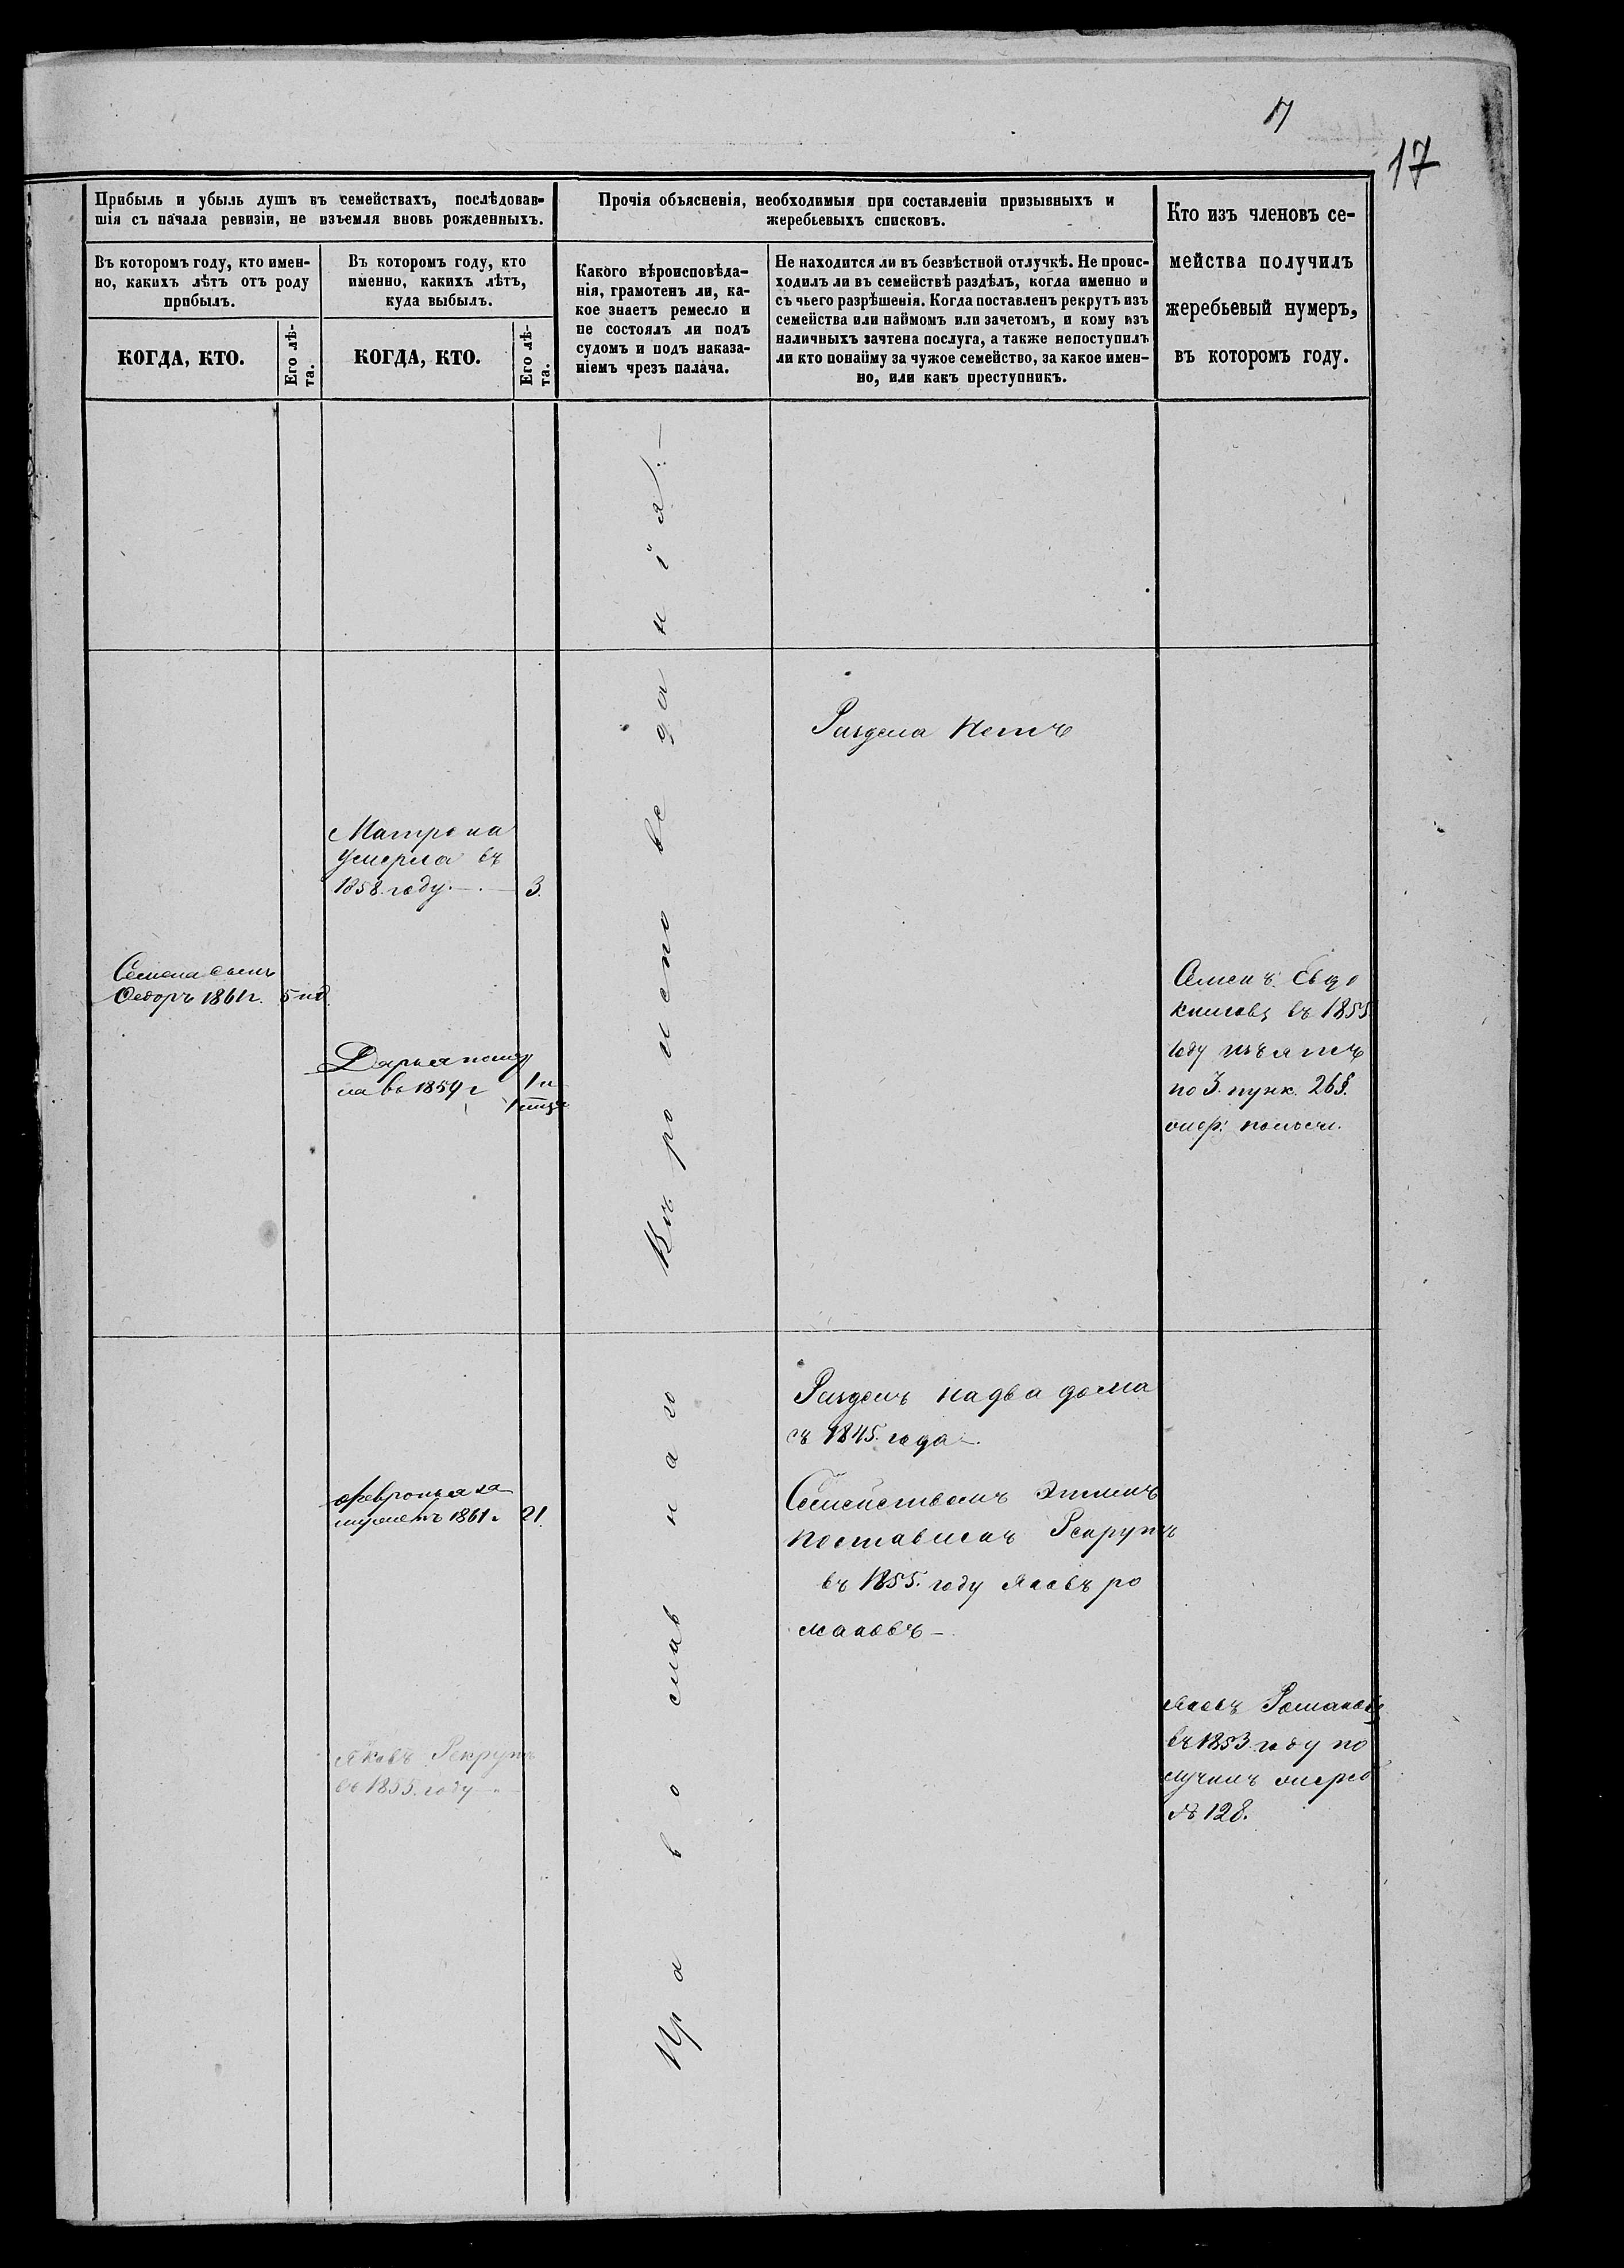 17
17
Прибыль и убыль душъ въ семействахъ, послѣдовав-
шія съ начала ревизіи, не изъемля вновь рожденныхъ.
Прочія объясненія, необходимыя при составленіи призывныхъ и
жеребьевыхъ списковъ.
Кто изъ членовъ се-
мейства получилъ
жеребьевый нумеръ,
въ которомъ году.
Въ которомъ году, кто имен-
но, какихъ лѣтъ отъ роду
прибылъ.
Въ которомъ году, кто
именно, какихъ лѣтъ,
куда выбылъ.
Какого вѣроисповѣда-
нія, грамотенъ ли, ка-
кое знаетъ ремесло и
не состоялъ ли подъ
судомъ и подъ наказа-
ніемъ чрезъ палача.
Не находится ли въ безвѣстной отлучкѣ. Не проис-
ходилъ ли въ семействѣ раздѣлъ, когда именно и
съ чьего разрѣшенія. Когда поставленъ рекрутъ изъ
семейства или наймомъ или зачетомъ, и кому изъ
наличныхъ зачтена послуга, а также непоступилъ
ли кто понайму за чужое семейство, за какое имен-
но, или какъ преступникъ.
КОГДА, КТО.
Его лѣ-
та.
КОГДА, КТО.
Его лѣ-
та.
Православнаго Вѣроисповеданія.
Раздела Нетъ
Матрона
умерла въ
1858. году. 3.
Семена сынъ
Федоръ 1861 г.
Семенъ Евдо
кимовъ въ 1855
году изъятъ
по 3. пунк. 26§.
Дарья
въ 1859 г
Разделъ на два дома
съ 1845. года.
Семействомъ Этимъ
Поставленъ Рекрутъ
въ 1855. году Яковъ Ро
мановъ
Февронья за
мужемъ 1861 г 21.
Яковъ Романовъ
въ 1853 году по
лучилъ
№ 128.
Яковъ Рекрутъ
въ 1855. году